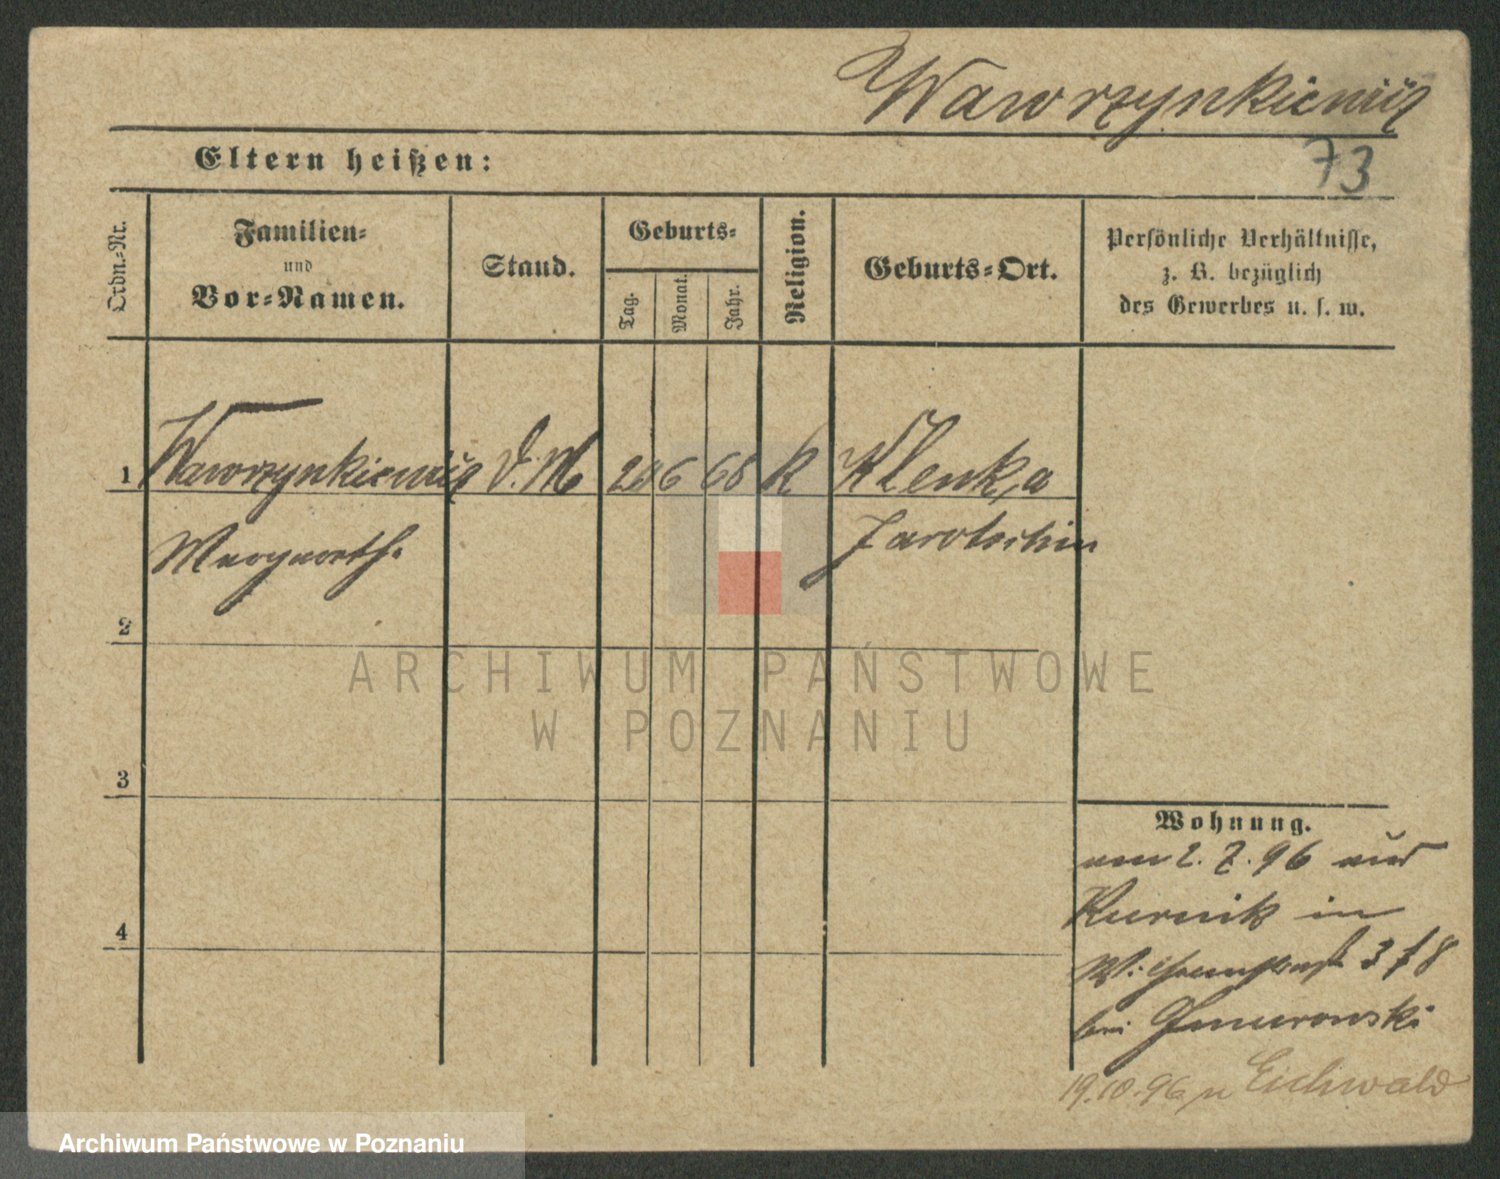 Wawrzynkiewicz
73
Eltern heißen:
Ordn.-Nr.
Familien-
und
Vor-Namen.
Stand.
Geburts-
Tag.
Monat.
Jahr.
Religion.
Geburts-Ort.
Persönliche Verhältnisse,
z. B. bezüglich
des Gewerbes u. s. w.
1 Wawrzynkiewicz D. M 24 6 68 K Klenka
Margareth. Jarotschin
2
3
4
Wohnung.
am 2. 7. 96 aus
Kurnik in
3 f 8
bei Gmurowski
19.10.96 n Eichwald
ARCHIWUM PAŃSTWOWE
W POZNANIU
Archiwum Państwowe w Poznaniu